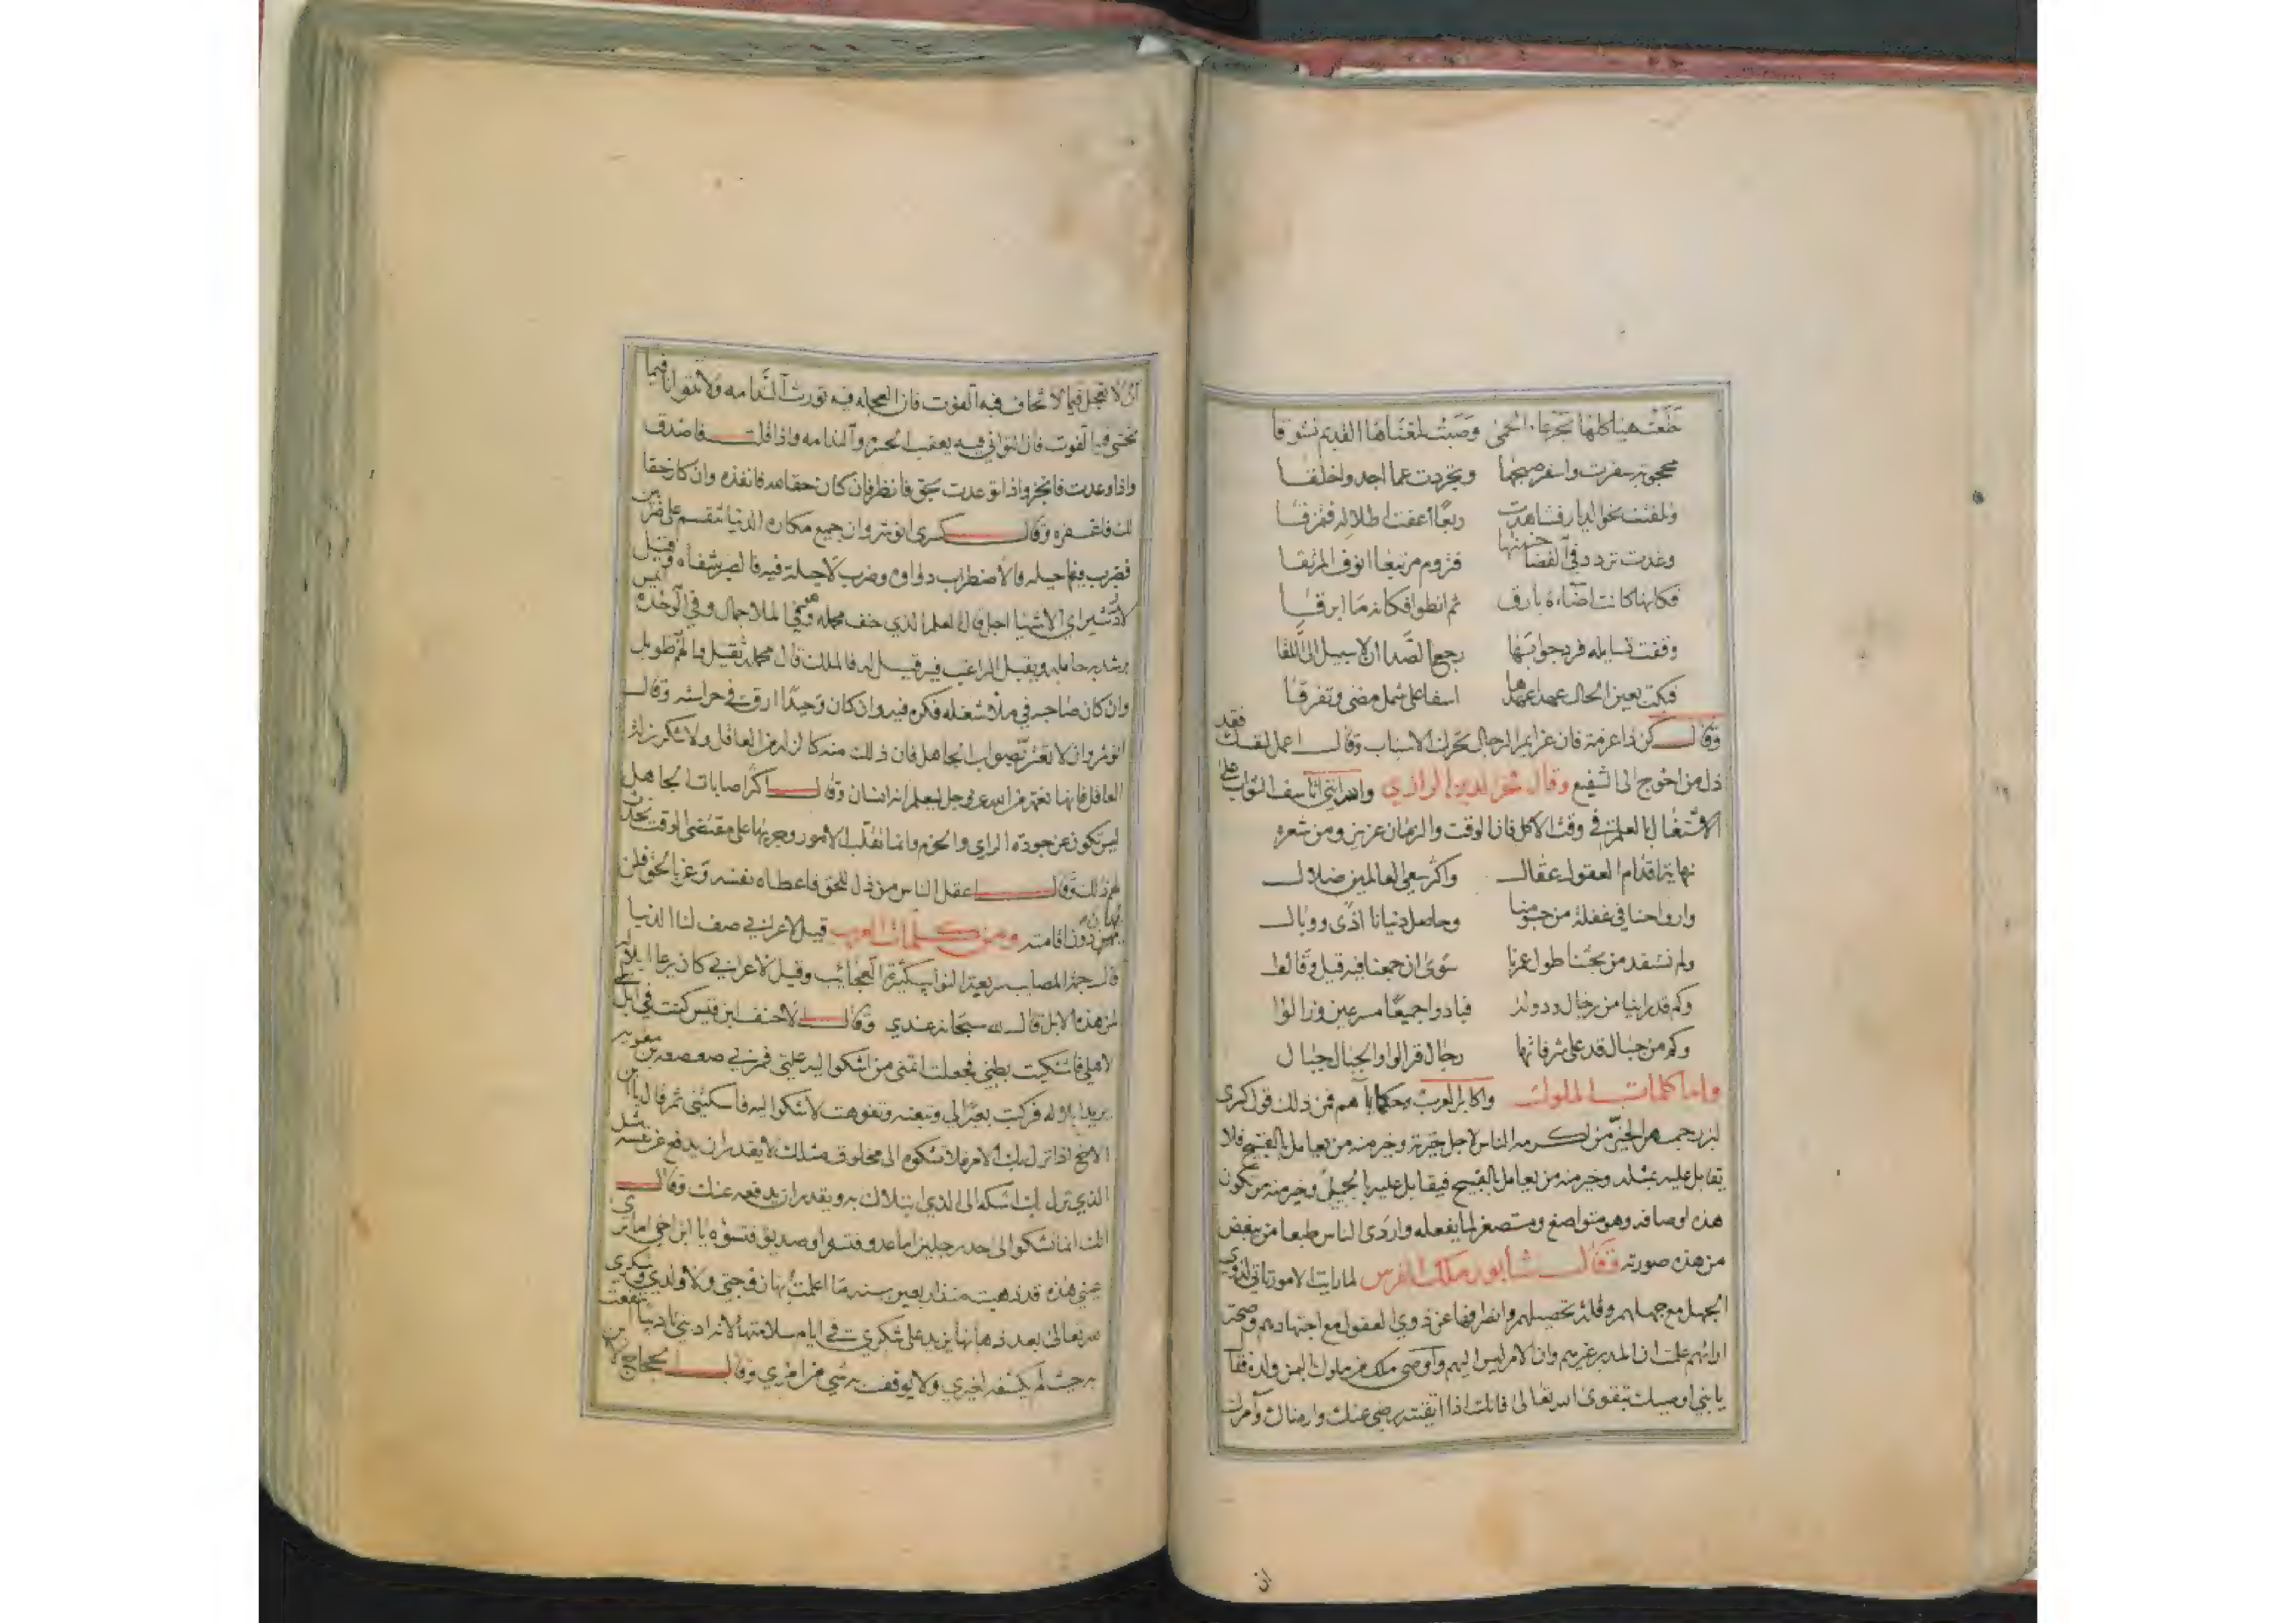 خلعت هياكلها بجرعاء الحمى وصبت لمغناها القديم تشوقا
محجوبة سفرت واسفر صبحها وتجردت عما اجد واخلقا
وتلفتت نحو الديار فشاهدت ربعا اعفت اطلاله فتمزقا
وغدت تردد في الفضا حنينها فتروم مرتبعا انوف المرتقا
فكانها كانت اضاءة بارق ثم انطوا فكانه ما ابرقا
وقفت تسايله فرد جوابها رجع الصدا ان لا سبيل الى اللقا
فبكت بعين الحال عهدا عهدها اسفا على شمل مضى وتفرقا
وقال كن ذا عزمة فان عزايم الرجال تحرك الاسباب وقال اعمل لنفسك فقد
ذل من احوج الى الشفيع وقال فخر الدين الرازي والله انني اتاسف الثواب على
الاشتغال بالعلم في وقت الاكل فان الوقت والزمان عزيز ومن شعره
نهاية اقدام العقول عقال واكثر سعي العالمين ضلال
وارواحنا في غفلة من جسومنا وحاصل دنيانا اذى ووبال
ولم نستفد من بحثنا طول عمرنا سوى ان جمعنا فيه قيل وقالوا
وكم قد راينا من رجال ودولة فبادوا جميعا مسرعين وزالوا
وكم من جبال قد على شرفاتها رجال فزالوا والجبال جبال
واما كلمات الملوك واكابر العرب وحكاياتهم فمن ذلك قول كسرى
لبزرجمهر الخير من اكرمه الناس لاجل خيره وخير منه من يعامل بالقبيح فلا
يقابل عليه بمثله وخير منه من يعامل بالقبيح فيقابل عليه بالجميل وخير منه من تكون
هذه اوصافه وهو متواضع ومستصغر لما يفعله واردى الناس طبعا من يبغض
من هذه صورته وقال شابور ملك الفرس لما رايت الامور تاتي لذوي
الجهل مع جهلهم وقلة تحصيلهم وانصرافها عن ذوي العقول مع اجتهادهم وصحة
ارائهم علمت ان المدبر غيرهم وان الامر ليس اليهم واوصى ملك من ملوك اليمن ولده فقال
يا بني اوصيك بتقوى الله تعالى فانك اذا اتقيته رضي عنك وارضاك وآمرك
ان
ان لا تعجل فيما لا تخاف فيه الفوت فان العجله فيه تورث الندامه ولا تتوانا فيما
تخشى فيه الفوت فان التواني فيه يعقب الحسره والندامه واذا قلت فاصدق
واذا وعدت فانجز واذا توعدت بحق فانظر فان كان حقا لله فانفذه وان كان حقا
لك فاغفره وقال كسرى انوشروان جميع مكاره الدنيا تنقسم على ضربين
فضرب فيه حيله فالاضطراب دواوه وضرب لا حيلة فيه فالصبر شفاه وقيل
لازدشير اي الاشيا اجل قال العلم الذي خف محمله فهو في الملا جمال وفي الوحده انيس
يرشد به حامله ويقبل الراغب فيه قيل له فالملك قال محمله ثقيل والهم طويل
وان كان صاحبه في ملا شغله فكره فيه وان كان وحيدا ارقته حراسته وقال
انوشروان لا تغتر بصواب الجاهل فان ذلك منه كالزلة من العاقل ولا تنكر زلة
العاقل فانها نعمة من الله عز وجل ليعلم انه انسان وقال اكثر اصابات الجاهل
ليس تكون عن جودة الراي والحزم وانما تقلب الامور وجريها على مقتضى الوقت تحدث
لهم ذلك وقال اعقل الناس من ذل للحق فاعطاه نفسه وعز بالحق فلن
يهان دون اقامته ومن كلمات العرب قيل لاعرابي صف لنا الدنيا
قال جمة المصايب سريعة النوايب كثيرة العجائب وقيل لاعرابي كان يرعا ابلا له
لمن هذه الابل قال لله سبحانه عندي وقال لي الاحنف ابن قيس كنت في ابل
لاهلي فاشتكيت بطني فجعلت اتمنى من اشكوا اليه علتي فمر بي صعصعه بن معويه
يريد ابلا له فركبت بعيرا لي وتبعته وتفوهت لاشكوا اليه فاسكتني ثم قال يا بن
الاخ اذا نزل بك الامر فلا تشكوه الى مخلوق مثلك لا يقدر ان يدفع عن نفسه مثل
الذي نزل بك اشكه الى الذي ابتلاك به ويقدر ان يدفعه عنك وقال
انك انما تشكوا الى احد رجلين اما عدو فتسره او صديق فتسؤه يا ابن اخي اما ترى
عيني هذه قد ذهبت منذ اربعين سنه ما اعلمت بها زوجتي ولا ولدي وشكري
لله تعالى بعد ذهابها يزيد على شكري في ايام سلامتها لانه
به حيث لم يكشفه لغيري ولا يوقف به شي من امري وقال الحجاج لابن